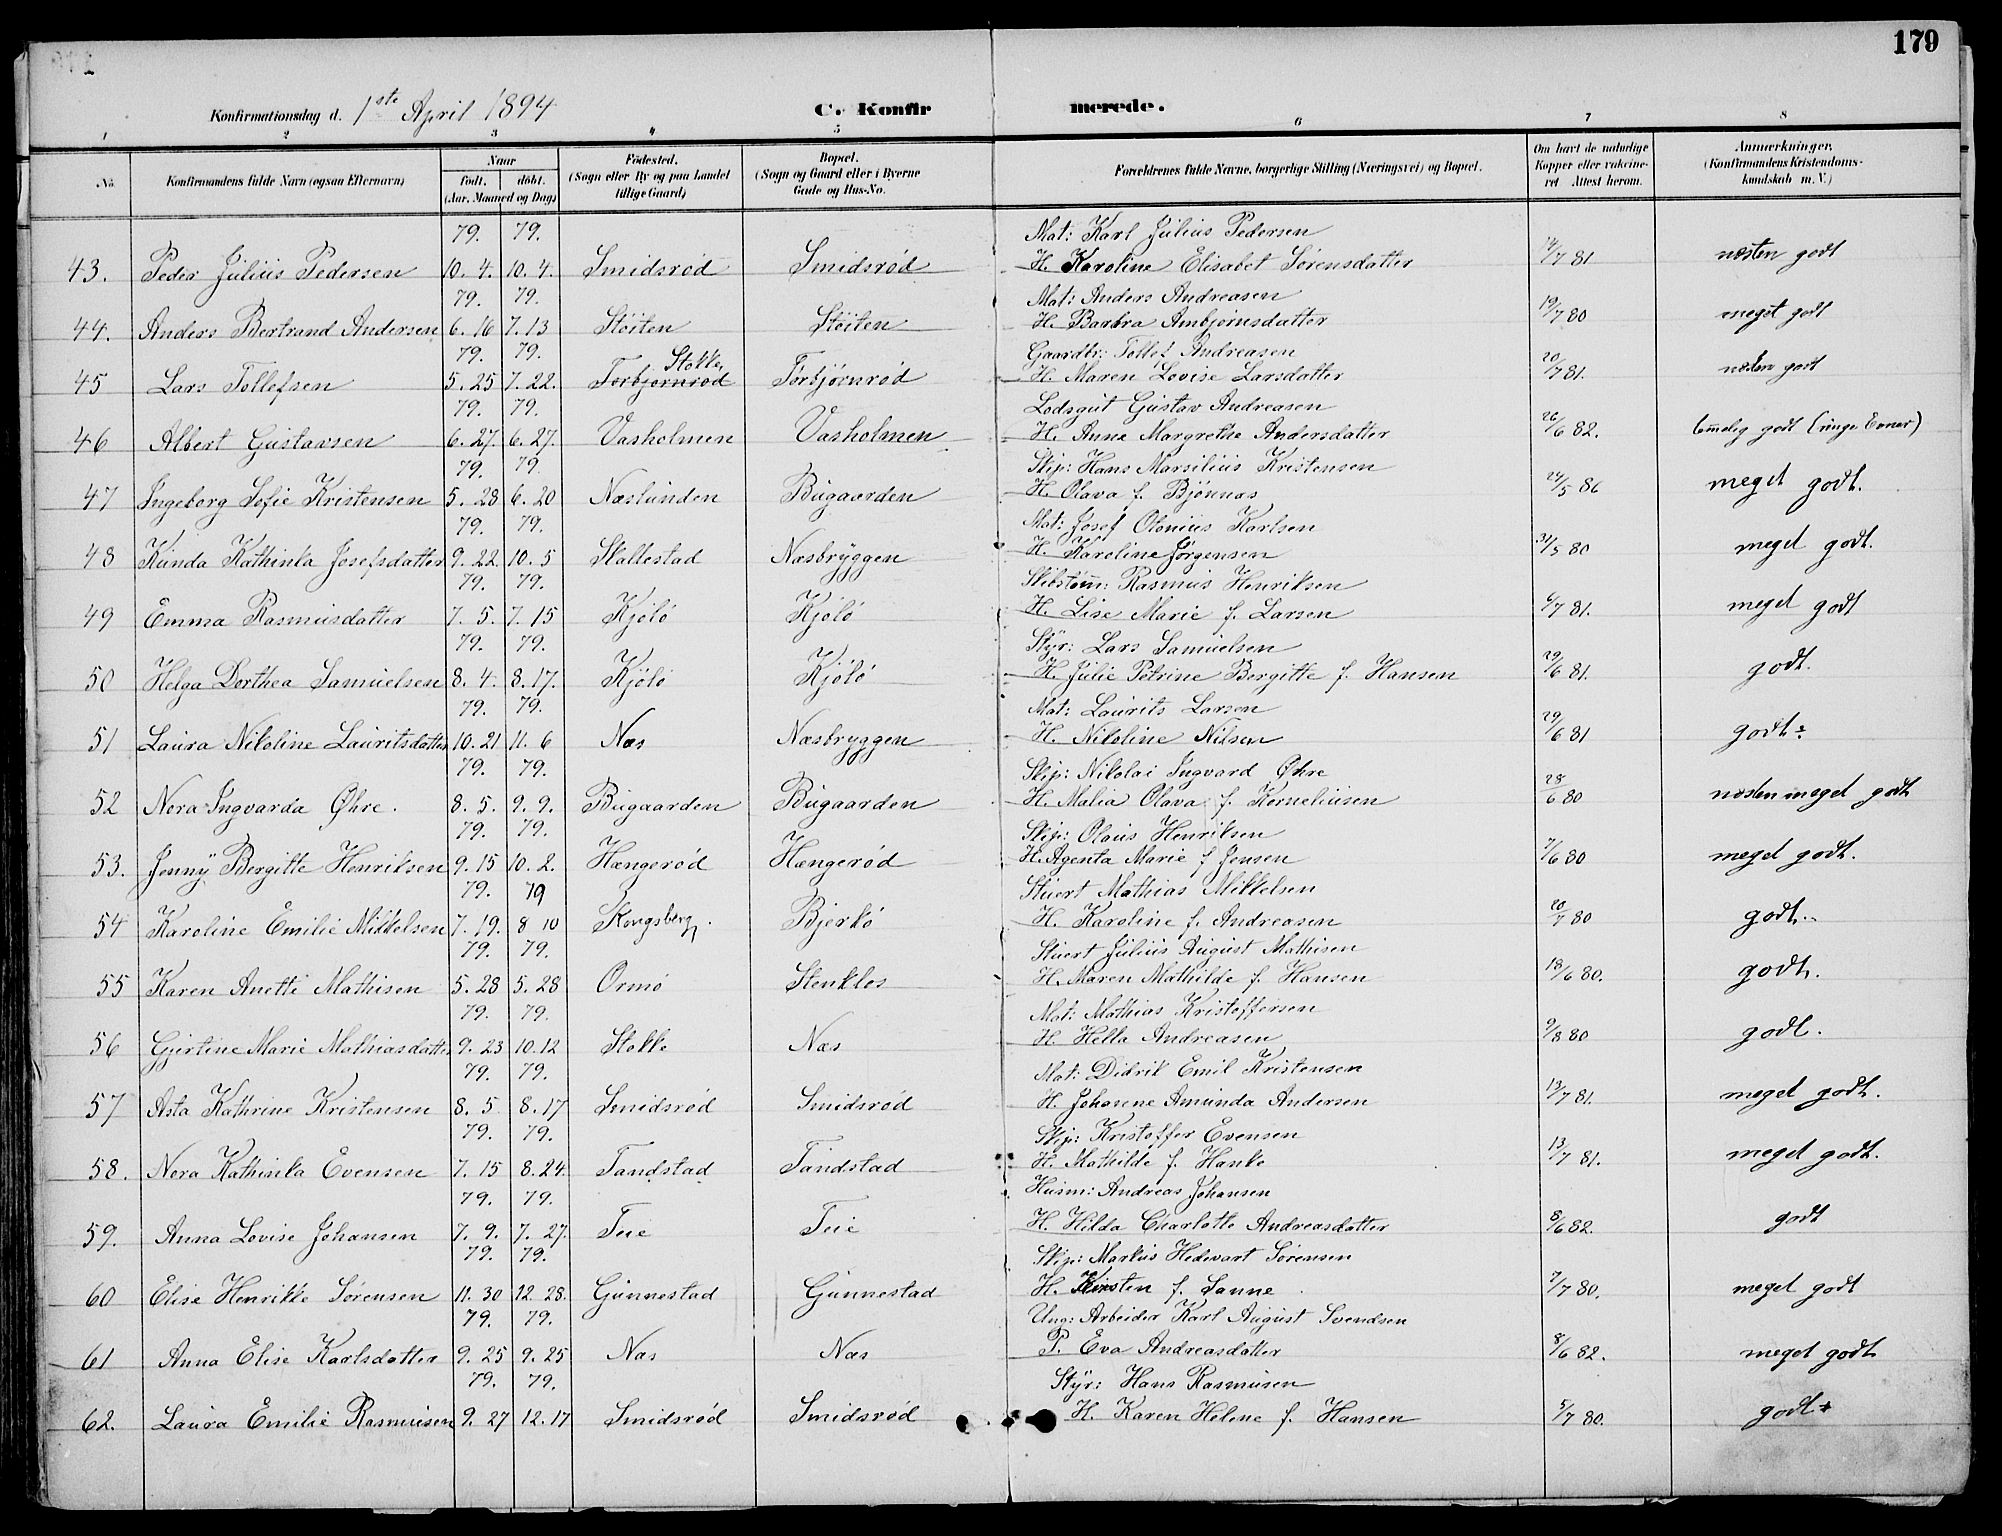 179
Konfirmationsdag d. 1ste April 1894
C. Konfirmerede.
1 2 3 4 5 6 7 8
No. Konfirmandens fulde Navn (ogsaa Efternavn) Naar født. døbt. (Aar, Maaned og Dag) Fødested. (Sogn eller By og paa Landet tillige Gaard) Bopæl. (Sogn og Gaard eller i Byerne Gade og Hus-No. Forældrenes fulde Navne, borgerlige Stilling (Næringsvei) og Bopæl. Om havt de naturlige Kopper eller vakcineret Attest herom. Anmærkninger, (Konfirmandens Kristendomskundskab m. V.)
79. 79. Mat: Karl Julius Pedersen
43. Peder Julius Pedersen 10. 4. 10. 4. Smidsrød Smidsrød H. Karoline Elisabet Sørensdatter 14/7 81 næsten godt
79. 79. Mat: Anders Andreasen
44. Anders Bertrand Andersen 6. 16 7. 13 Støiten Støiten H. Barbra Ambjørnsdatter 19/7 80 meget godt
79. 79. Stokke Gaardbr: Tollef Andreasen
45 Lars Tollefsen 5. 25 7. 22. Torbjørnrød Torbjørnrød H. Maren Lovise Larsdatter 20/7 81. næsten godt
79. 79. Lodsgut Gustav Andreasen
46 Albert Gustavsen 6. 27. 6. 27. Vasholmen Vasholmen H. Anne Margrethe Andersdatter 26/6 82. temmelig godt (ringe Evner)
79. 79. Skip: Hans Marsilius Kristensen
47 Ingeborg Sofie Kristensen 5. 28 6. 20 Næslunden Bugaarden H. Olava f. Bjønnes 24/5 86 meget godt.
79. 79. Mat: Josef Olonius Karlsen
48 Kunda Kathinka Josefsdatter 9. 22. 10. 5 Skallestad Næsbryggen H. Karoline Jørgensen 31/5 80 meget godt.
79. 79. Skibstøm: Rasmus Henriksen
49 Emma Rasmusdatter 7. 5. 7. 15 Kjølø Kjølø H. Lise Marie f. Larsen 6/7 81. meget godt
79. 79. Styr: Lars Samuelsen
50 Helga Dorthea Samuelsen 8. 4. 8. 17. Kjölö Kjölö H. Julie Petrine Bergitte f. Hansen 29/6 81. godt.
79. 79. Mat: Laurits Larsen
51 Laura Nikoline Lauritsdatter 10. 21 11. 6 Næs Næsbryggen H. Nikoline Nilsen 29/6 81 godt÷
79. 79. Skip: Nikolai Ingvard Øhre
52 Nora Ingvarda Øhre. 8. 5. 9. 9. Bugaarden Bugaarden H. Malia Olava f. Korneliusen 28/6 80 næsten meget godt
79. 79. Skip: Olaus Henriksen
53. Jenny Bergitte Henriksen 9. 15 10. 2. Hængerød Hængerød H. Agenta Marie f Jensen 7/6 80 meget godt.
79. 79 Stuert Mathias Mikkelsen
54 Karoline Emilie Mikkelsen 7. 19. 8 10 Kongsberg. Bjerkø H. Karoline f. Andreasen 20/7 80 godt.
79. 79. Stuert Julius August Mathisen
55 Karen Anette Mathisen 5. 28 5. 28 Ormø Stenkløs H. Maren Mathilde f. Hansen 18/6 80. godt.
79. 79. Mat: Mathias Kristoffersen
56 Gjertine Marie Mathiasdatter 9. 23 10. 12 Stokke Næs H. Hella Andreasen 9/8 80 godt.
79. 79. Mat: Didrik Emil Kristensen
57 Asta Kathrine Kristensen 8. 5 8. 17 Smidsrød Smidsrød H. Johanne Amunda Andersen 13/7 81. meget godt.
79. 79. Skip: Kristoffer Evensen
58. Nora Kathinka Evensen 7. 15 8. 24. Tandstad Tandstad H. Mathilde f. Hanke 13/7 81. meget godt.
79. 79. Husm: Andreas Johansen
59. Anna Lovise Johansen 7. 9. 7. 27. Teie Teie H. Hilda Charlotte Andreasdatter 8/6 82. godt
79. 79. Skip: Markus Hedevart Sørensen
60 Elise Henrikke Sørensen 11. 30 12. 28. Gunnestad Gunnestad H. Kirsten f. Sanne 7/7 80. meget godt
79. 79. Ung: Arbeider Karl August Svendsen
61 Anna Elise Karlsdatter 9. 25 9. 25 Næs Næs P. Eva Andreasdatter 8/6 82. meget godt
79. 79. Styr: Hans Rasmusen
62. Laura Emilie Rasmusen 9. 27 12. 17 Smidsrød Smidsrød H. Karen Helene f. Hansen 5/7 80. godt+